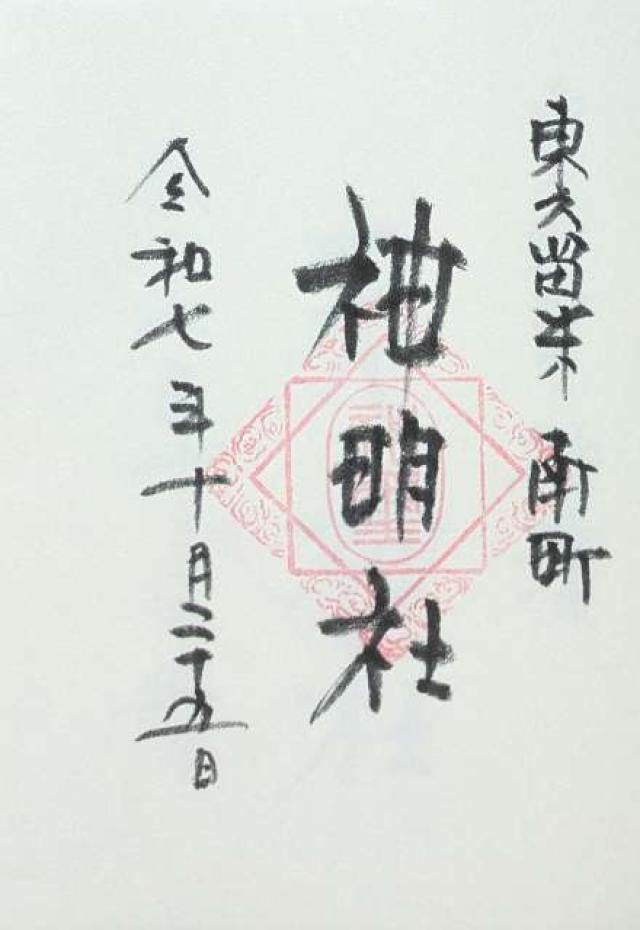 東久留米南町
神明社
令和七年十月二十五日